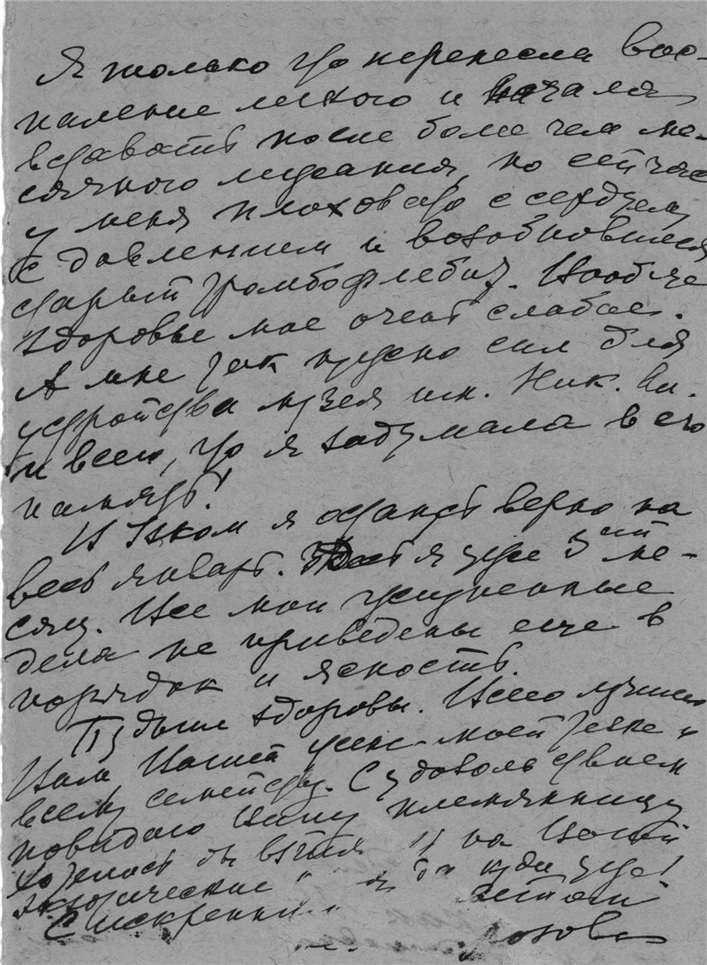 Я только что перенесла вос-
паление легкого и начала
вставать после более чем ме-
сячного лежания, но сейчас
у меня плоховато с сердцем,
с давлением и возобновился
старый тромбофлебит. Вообще
здоровье мое очень слабое.
А мне так нужно сил для
устройства музея им. Ник. Ив.
и всего, что я задумала в его
память!
я останусь верно на
весь январь. я уже 3ий ме-
сяц. Все мои жизненные
дела не приведены еще в
порядок и ясность.
Будьте здоровы. Всего лучшего
Вам Вашей жене моей тезке и
всему семейству. С удовольствием
повидаю Вашу племянницу
Хотелось бы взглянуть на Ваши
экзотические
С искренним